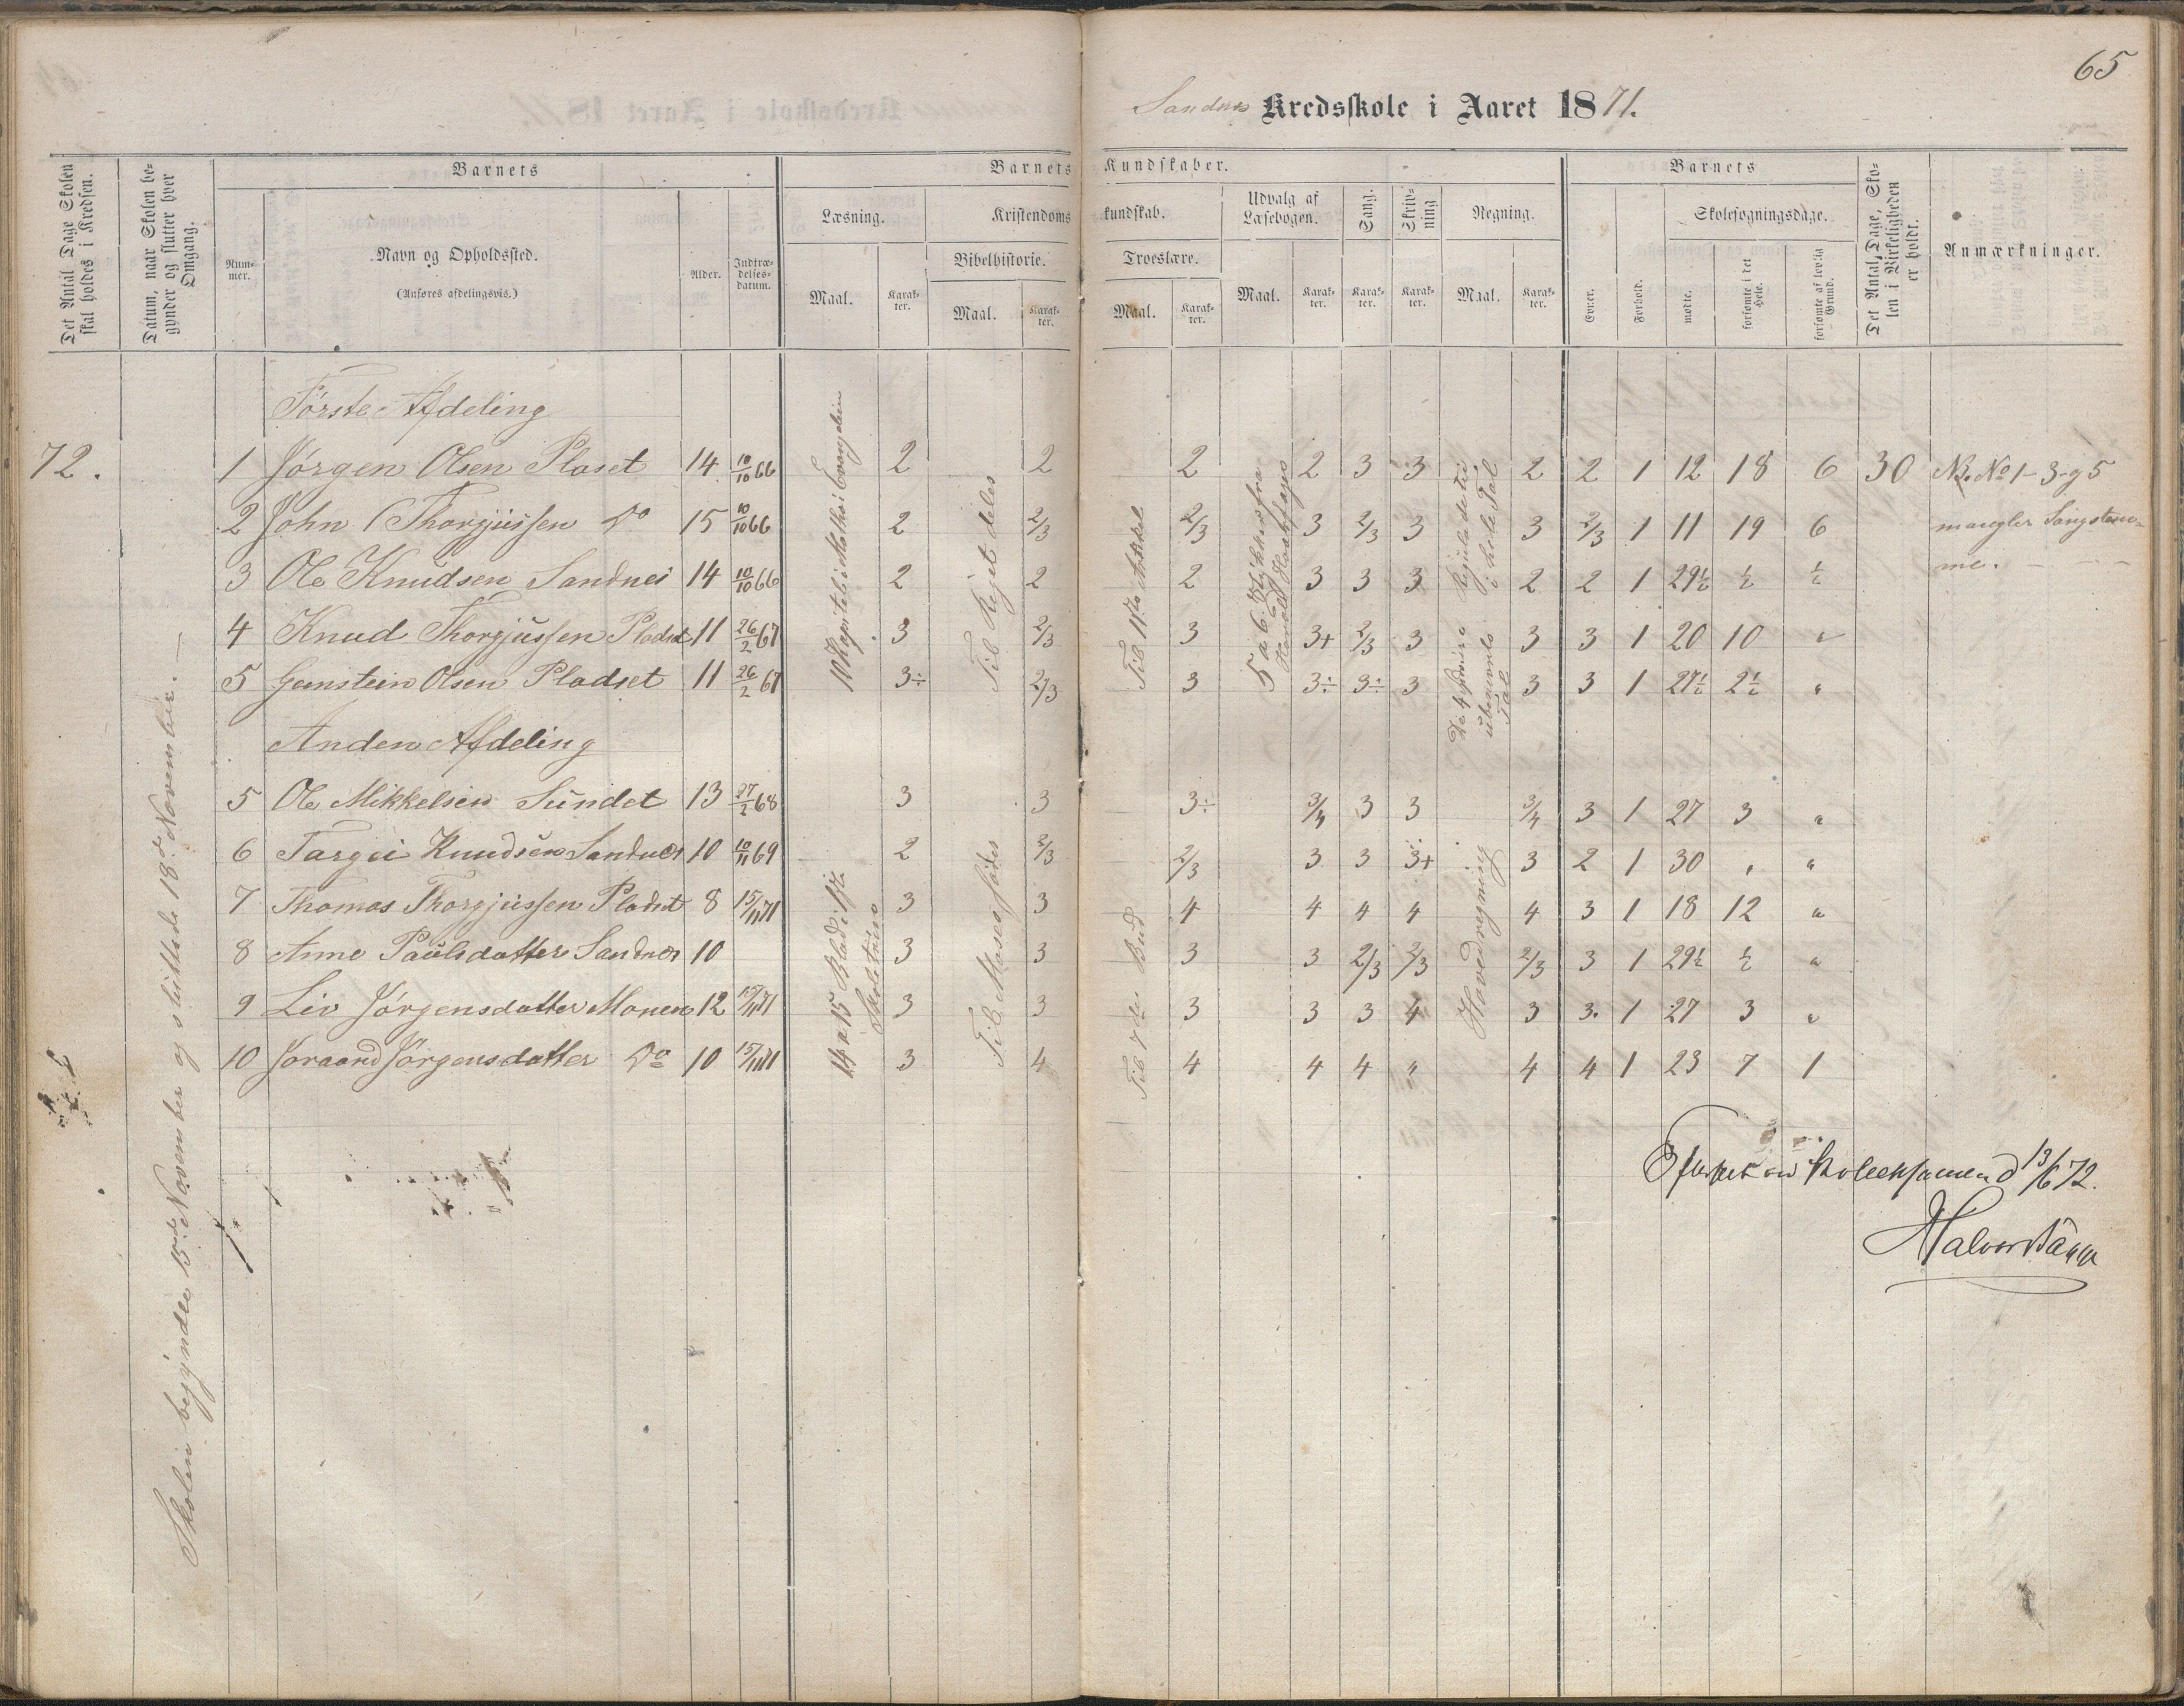 65
Sandnes Kredsskole i Aaret 1871.
Det Antal Dage Skolen skal holdes i Kredsen.
Datum, naar Skolen begynder og slutter hver Omgang.
Barnets
Barnets Kundskaber.
Barnets
Det Antal Dage, Skolen i Virkeligheden er holdt.
Anmærkninger.
Nummer.
Navn og Opholdssted.
(Anføres afdelingsvis.)
Alder.
Indtrædelsesdatum.
Læsning.
Kristendomskundskab.
Udvalg af Læsebogen.
Sang.
Skrivning
Regning.
Evner.
Forhold.
Skolesøgningsdage.
Bibelhistorie.
Troeslære.
Maal.
Karakter.
Maal.
Karakter.
Maal.
Karakter.
Maal.
Karakter.
Karakter.
Karakter.
Maal.
Karakter.
mødte.
forsømte i det Hele.
forsømte af lovlig Grund.
Første Afdeling
72. 1 Jørgen Olsen Plaset 14 10/10 66 2 2 2 2 3 3 2 2 1 12 18 6 30 NB. No 1-3-g 5
2 John Thorgjussen Do 15 10/10 66 2 2/3 2/3 3 2/3 3 3 2/3 1 11 19 6 mangler Sangstem-
3 Ole Knudsen Sandnes 14 10/10 66 2 2 2 3 3 3 2 2 1 29½ ½ ½ me.
4 Knud Thorgjussen Pladset 11 26/2 67 3 2/3 3 3+ 2/3 3 3 3 1 20 10 "
5 Gunstein Olsen Pladset 11 26/2 67 3÷ 2/3 3 3÷ 3÷ 3 3 3 1 27½ 2½ "
Anden Afdeling
5 Ole Mikkelsen Sundet 13 27/2 68 3 3 3÷ 3/4 3 3 3/4 3 1 27 3 "
6 Targei Knudsen Sandnes 10 10/11 69 2 2/3 2/3 3 3 3+ 3 2 1 30 " "
7 Thomas Thorgjussen Pladset 8 15/11 71 3 3 4 4 4 4 4 3 1 18 12 "
8 Anne Paulsdatter Sandnes 10 3 3 3 3 2/3 2/3 2/3 3 1 29½ ½ "
9 Liv Jørgensdatter Monen 12 15/11 71 3 3 3 3 3 4 3 3. 1 27 3 "
10 Joraand Jørgensdatter Do 10 15/11 71 3 4 4 4 4 " 4 4 1 23 7 1
Skolen begyndte 15de November og sluttede 18de November.
Til Riget deles
Til 11te Artikel
i hele Tal
ubenævnte Tal
14 a 15 Blad i
Til Moses fødes
Til 7de Bud
Hovedregning
13/6 72.
Halvor